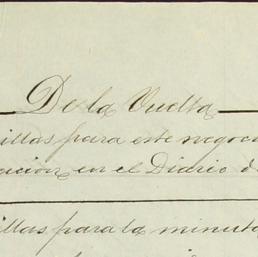 De la Vuelta
illas para este negoc
ación, en el Diario d
illas para la minuta